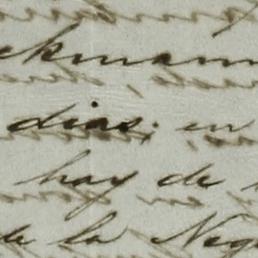 ckmann
dias; en
hay de
de la Neg